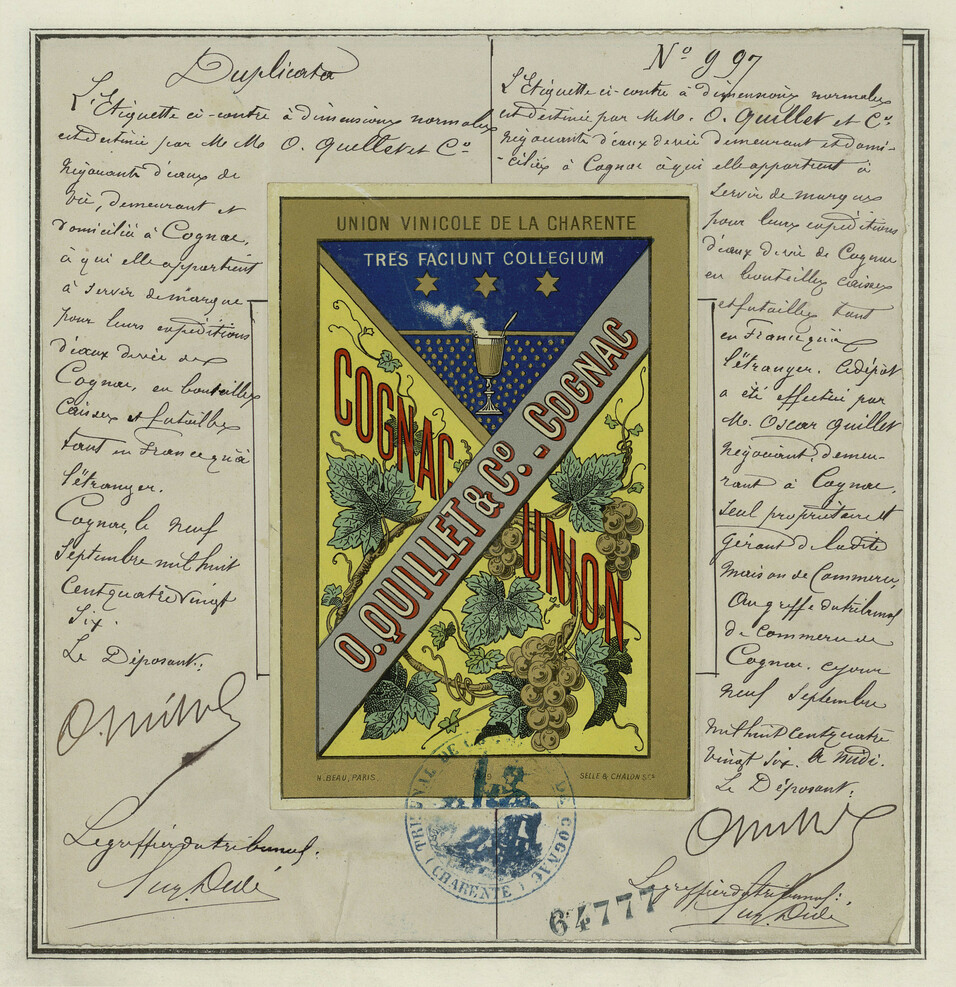 Duplicata
L'Etiquette ci-contre à dimensions normales
est destinée par M M. O. Quillet et Cie
Négociants d'eaux de
vie, demeurant et
domiciliés à Cognac,
à qui elle appartient
à servir de marque
pour leurs expéditions
d'eaux de vie de
Cognac, en bouteilles
Caisses et futailles
tant en France qu'à
l'étranger.
Cognac, le neuf
Septembre mil huit
Cent quatre vingt
Six.
Le Déposant:
Le greffier du tribunal.
No 997
L'Etiquette ci-contre à dimensions normales
est destinée par M M. O. Quillet et Cie
Négociants d'eaux de vie demeurant et domi-
-ciliés à Cognac à qui elle appartient à
servir de marques
pour leurs expéditions
d'eaux de vie de Cognac
en bouteilles caisses
et futailles tant
en France qu'à
l'étranger. Ce dépôt
a été effectué par
M. Oscar Quillet
Négociant, demeu-
rant à Cognac,
seul propriétaire et
gérant de ladite
maison de Commerce,
Au greffe du tribunal
de Commerce de
Cognac. ce jour
neuf Septembre
mil huit Cent quatre
vingt six. à midi.
Le Déposant:
Le greffier du tribunal:
UNION VINICOLE DE LA CHARENTE
TRES FACIUNT COLLEGIUM
COGNAC
O. QUILLET & Co. - COGNAC
UNION
N. BEAU, PARIS.
SELLE & CHALON & Cs
TRIBUNAL DE COMMERCE DE COGNAC
(CHARENTE)
64777